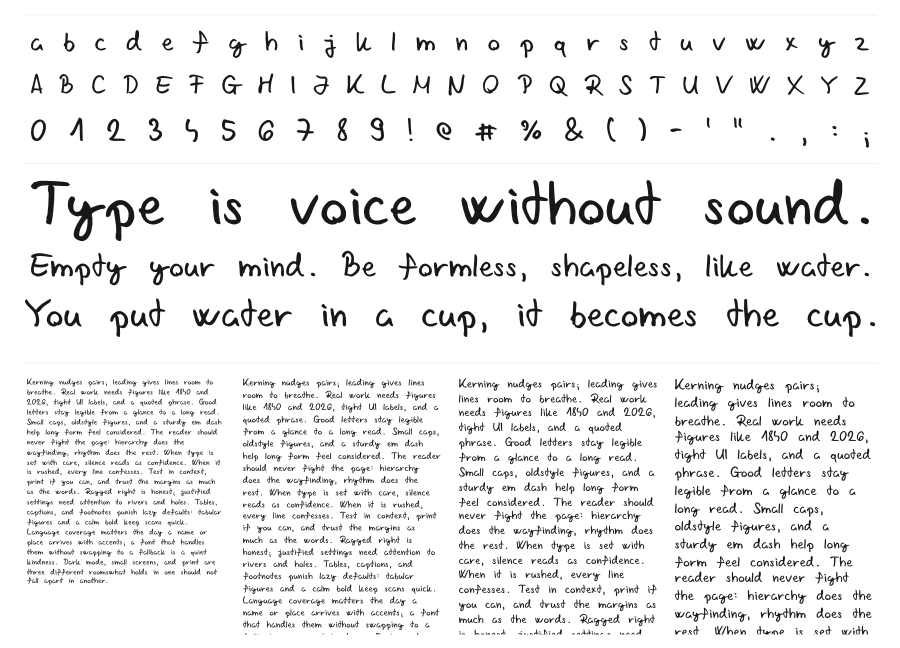 a b c d e f g h i j k l m n o p q r s t u v w x y z
A B C D E F G H I J K L M N O P Q R S T U V W X Y Z
0 1 2 3 4 5 6 7 8 9 ! @ # % & ( ) - ' " . , : ;
Type is voice without sound.
Empty your mind. Be formless, shapeless, like water.
You put water in a cup, it becomes the cup.
Kerning nudges pairs; leading gives lines room to
breathe. Real work needs figures like 1840 and
2026, tight UI labels, and a quoted phrase. Good
letters stay legible from a glance to a long read.
Small caps, oldstyle figures, and a sturdy em dash
help long form feel considered. The reader should
never fight the page: hierarchy does the
wayfinding, rhythm does the rest. When type is
set with care, silence reads as confidence. When it
is rushed, every line confesses. Test in context,
print if you can, and trust the margins as much
as the words. Ragged right is honest; justified
settings need attention to rivers and holes. Tables,
captions, and footnotes punish lazy defaults: tabular
figures and a calm bold keep scans quick.
Language coverage matters the day a name or
place arrives with accents; a font that handles
them without swapping to a fallback is a quiet
kindness. Dark mode, small screens, and print are
three different rooms what holds in one should not
fall apart in another.
Kerning nudges pairs; leading gives lines
room to breathe. Real work needs figures
like 1840 and 2026, tight UI labels, and a
quoted phrase. Good letters stay legible
from a glance to a long read. Small caps,
oldstyle figures, and a sturdy em dash
help long form feel considered. The reader
should never fight the page: hierarchy
does the wayfinding, rhythm does the
rest. When type is set with care, silence
reads as confidence. When it is rushed,
every line confesses. Test in context, print
if you can, and trust the margins as
much as the words. Ragged right is
honest; justified settings need attention to
rivers and holes. Tables, captions, and
footnotes punish lazy defaults: tabular
figures and a calm bold keep scans quick.
Language coverage matters the day a
name or place arrives with accents; a font
that handles them without swapping to a
Kerning nudges pairs; leading gives
lines room to breathe. Real work
needs figures like 1840 and 2026,
tight UI labels, and a quoted
phrase. Good letters stay legible
from a glance to a long read.
Small caps, oldstyle figures, and a
sturdy em dash help long form
feel considered. The reader should
never fight the page: hierarchy
does the wayfinding, rhythm does
the rest. When type is set with
care, silence reads as confidence.
When it is rushed, every line
confesses. Test in context, print if
you can, and trust the margins as
much as the words. Ragged right
is honest; justified settings need
Kerning nudges pairs;
leading gives lines room to
breathe. Real work needs
figures like 1840 and 2026,
tight UI labels, and a quoted
phrase. Good letters stay
legible from a glance to a
long read. Small caps,
oldstyle figures, and a
sturdy em dash help long
form feel considered. The
reader should never fight
the page: hierarchy does the
wayfinding, rhythm does the
rest. When type is set with